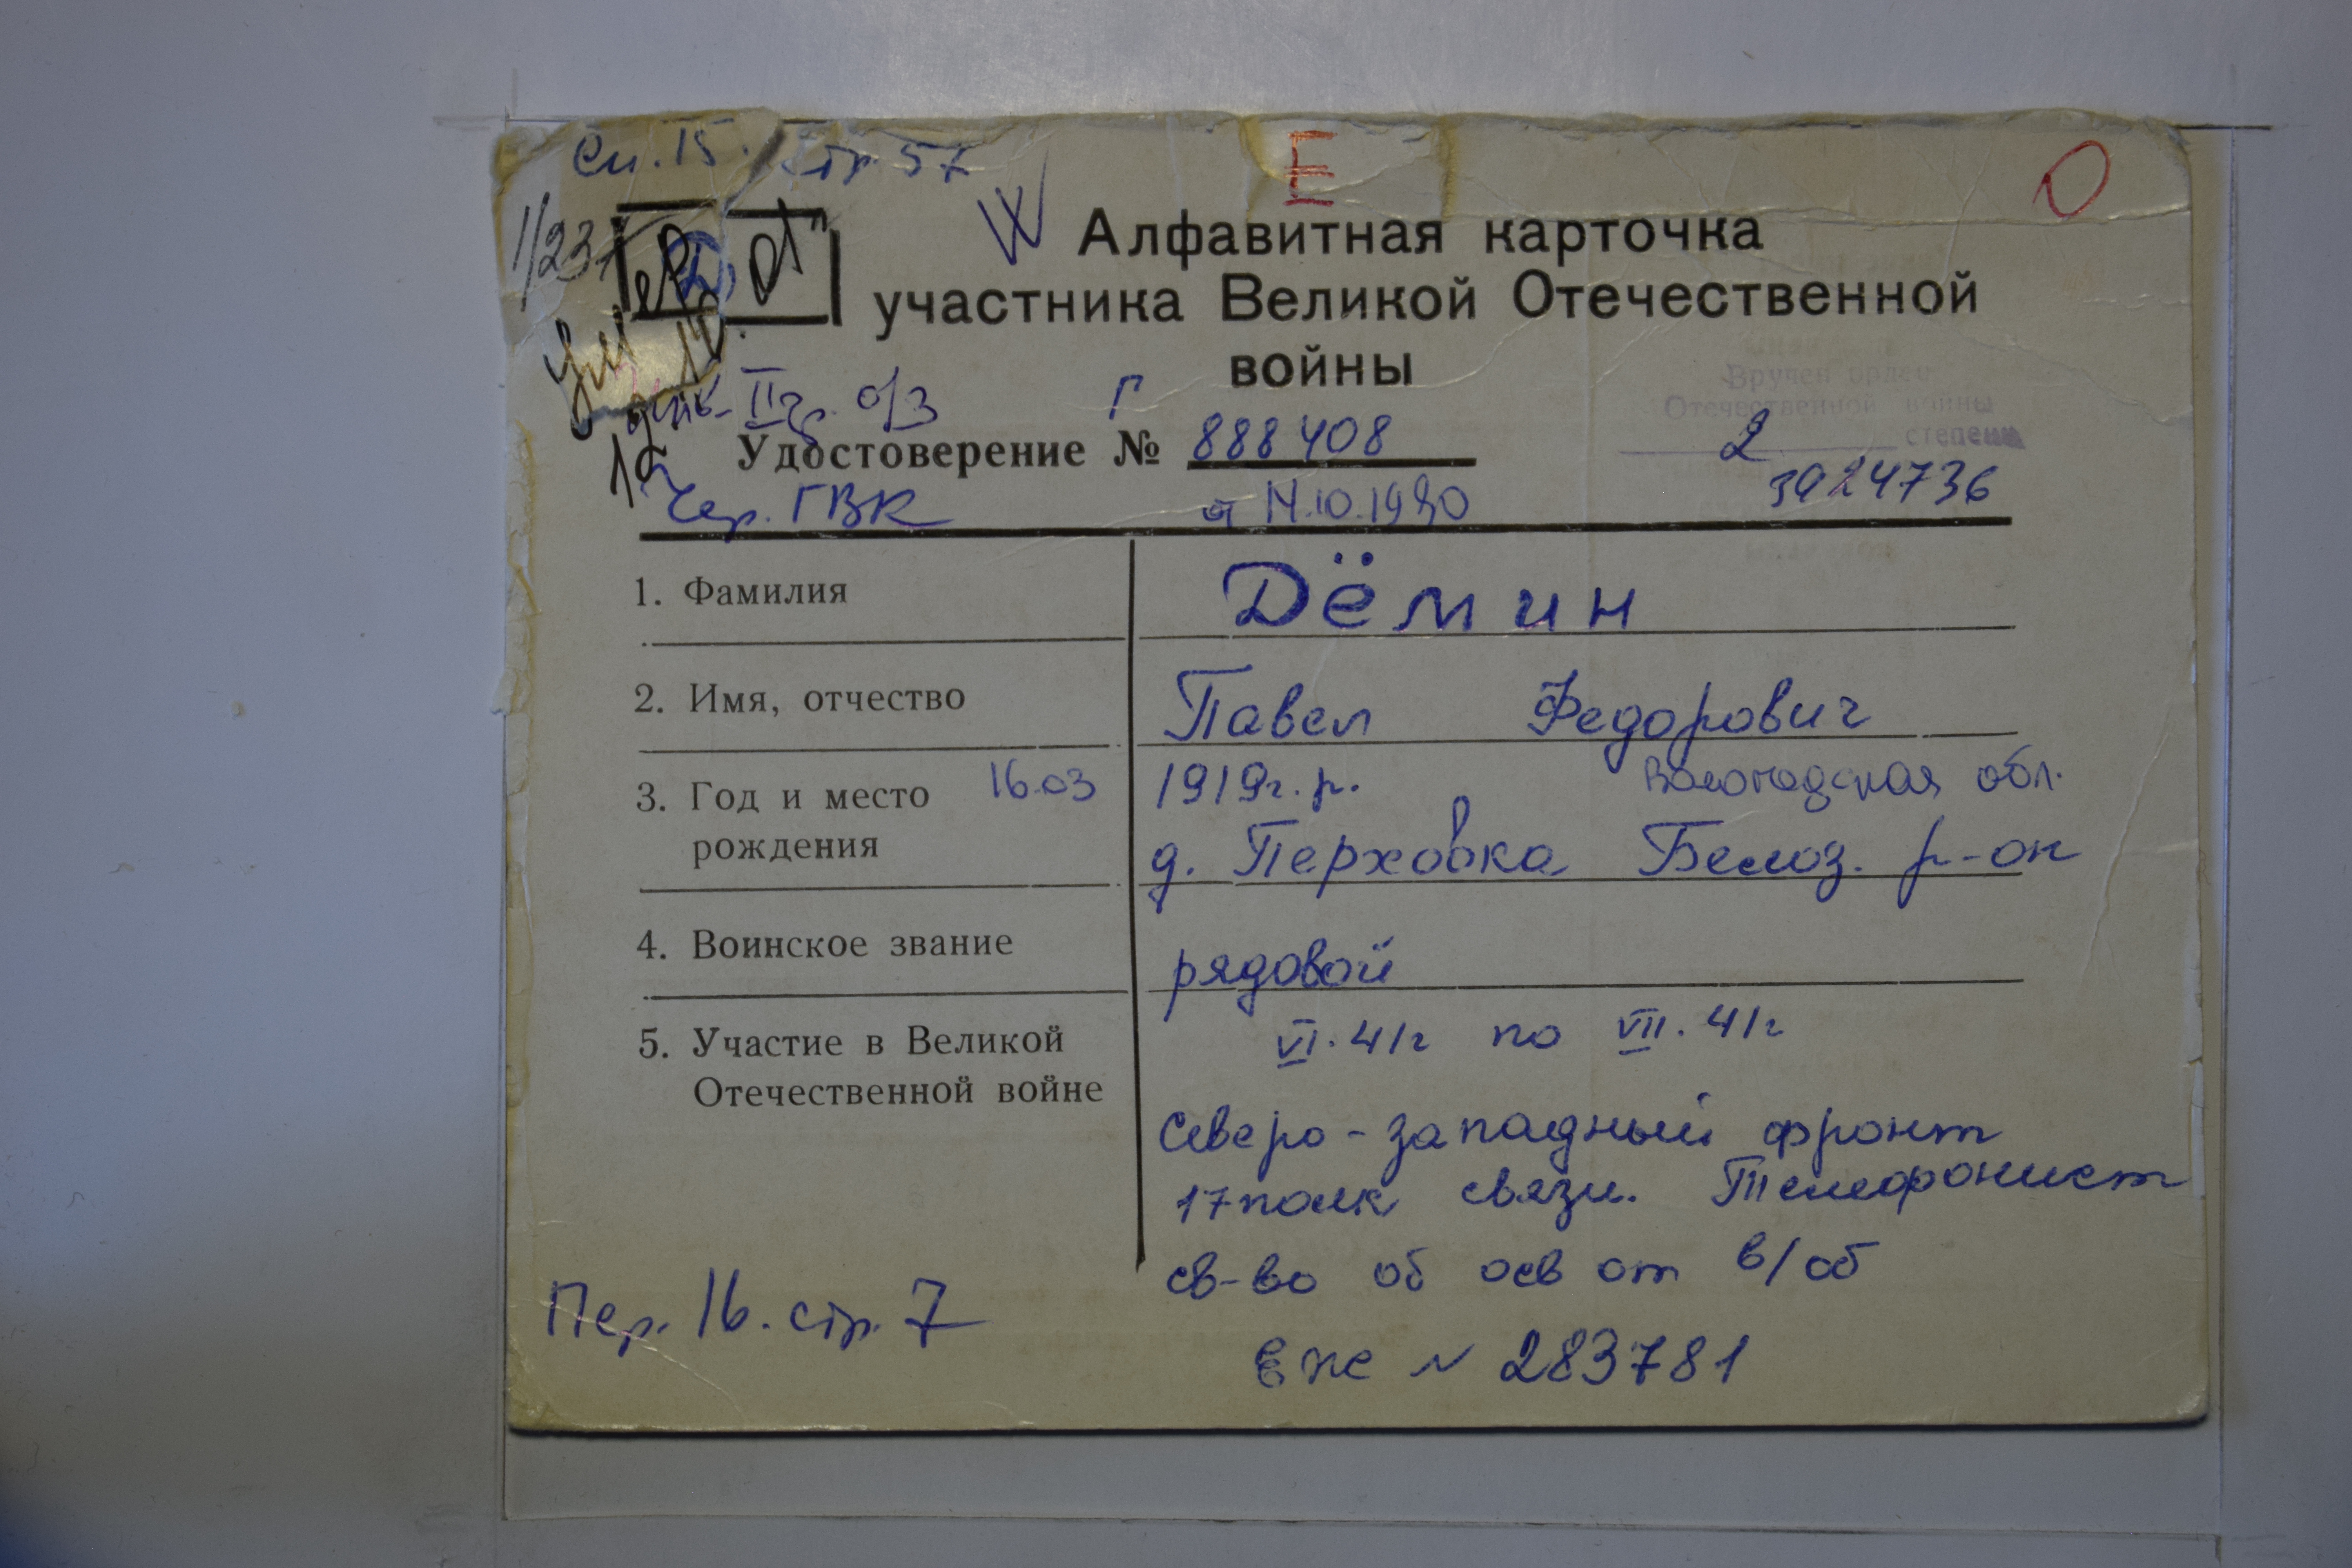 Сп. 15. стр. 57
Е
О
Алфавитная карточка
участника Великой Отечественной
войны
1/237
инв. II гр. о/з
Г
Вручен орден
Отечественной войны
2 степени
Удостоверение № 888408
3924736
Чер. ГВК
от 14.10.1980
1. Фамилия
Дёмин
2. Имя, отчество
Павел Федорович
3. Год и место
рождения
16.03
1919г.р. Вологодская обл.
д. Перховка Белоз. р-он
4. Воинское звание
рядовой
5. Участие в Великой
Отечественной войне
VI. 41г по VII. 41г
Северо-западный фронт
17 полк связи. Телефонист
св-во об осв от в/об
№ 283781
Пер. 16. стр. 7